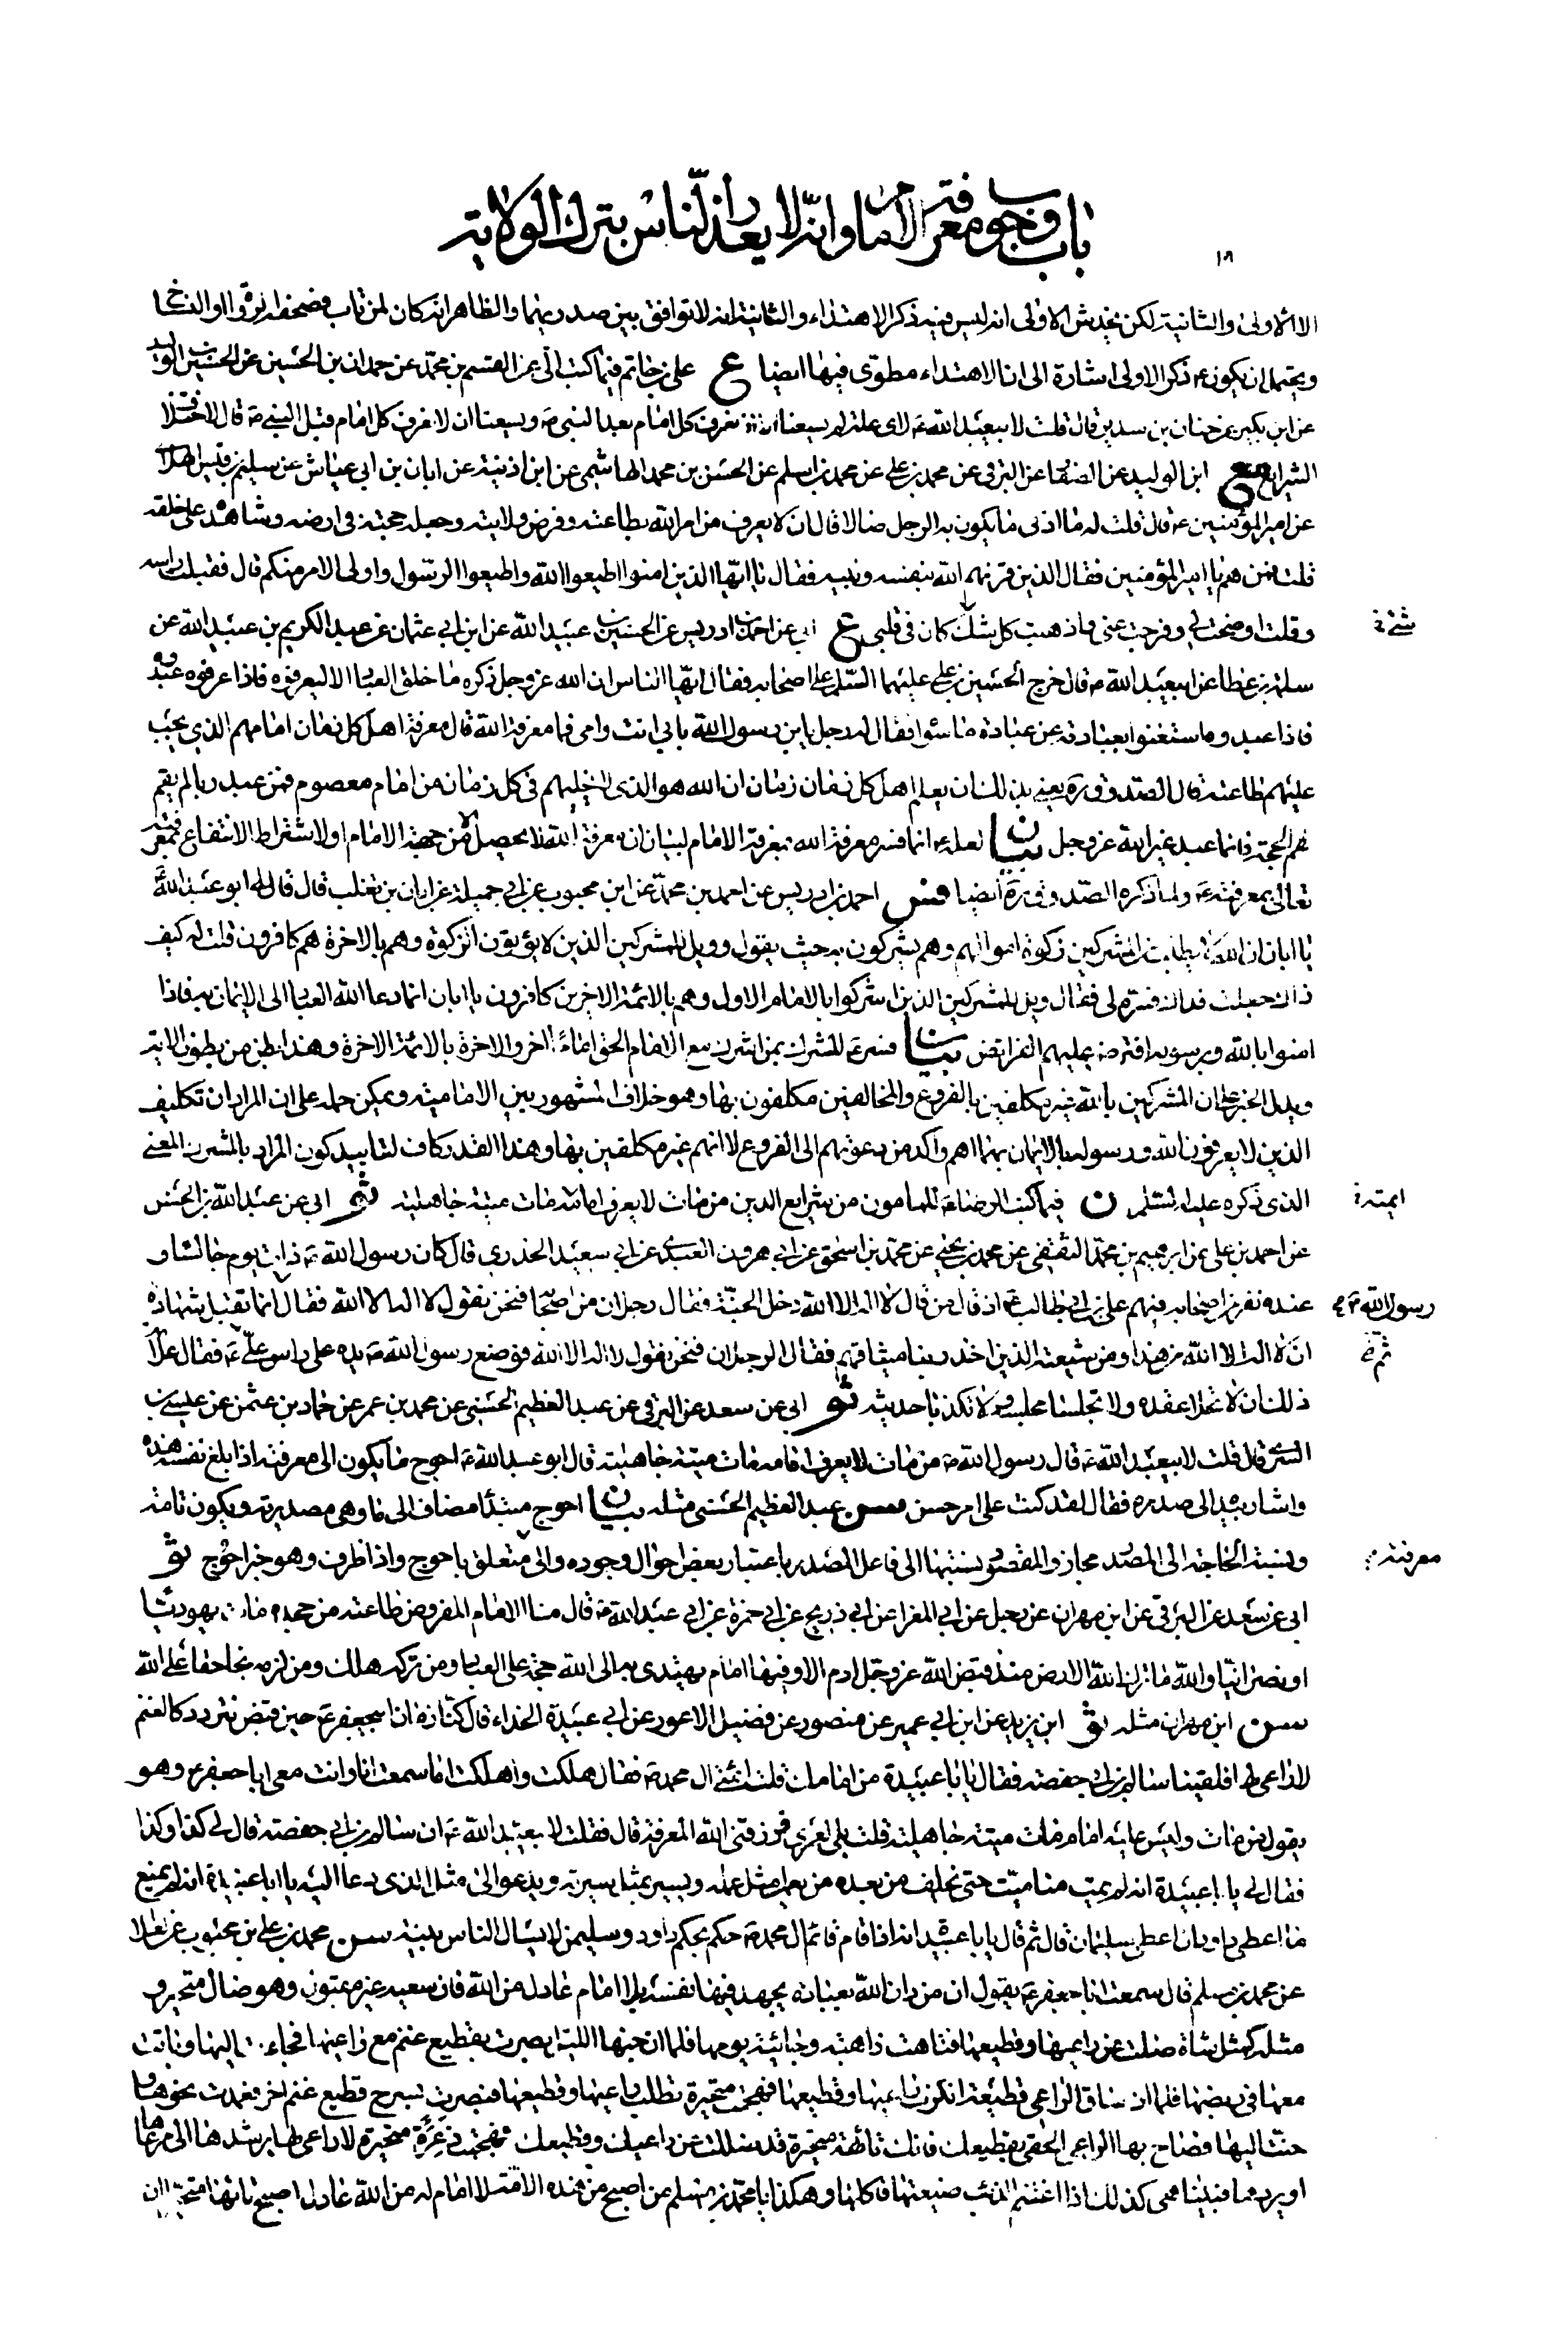 باب وجوب معرفة الامام وانه لا يعذر الناس بترك الولاية
١٨
الا الاولى والثانية لكن يخدش الاولى انه ليس فيه ذكر الاهتداء والثانية انه لا توافق بين صدريهما والظاهر انه كان لمن تاب فصحفه الرواة او النساخ
ويحتمل ان يكون ذكر الاولى اشارة الى ان الاهتداء مطوى فيها ايضا ع على بن حاتم فيما كتب الى عن القسم بن محمد عن حمدان بن الحسين عن الحسين بن الوليد
عن ابن بكير عن حنان بن سدير قال قلت لابيعبد الله ع لاى علة لم يسعنا الا ان نعرف كل امام بعد النبى ص ويسعنا ان لا نعرف كل امام قبل النبى ص قال لاختلاف
الشرايع مع ابن الوليد عن الصفار عن البرقى عن محمد بن على عن محمد بن اسلم عن الحسن بن محمد الهاشمى عن ابن اذينة عن ابان بن ابى عياش عن سليم بن قيس الهلالى
عن امير المؤمنين ع قال قلت له ما ادنى ما يكون به الرجل ضالا قال ان لا يعرف من امر الله بطاعته وفرض ولايته وجعله حجته فى ارضه وشاهده على خلقه
قلت فمن هم يا امير المؤمنين فقال الذين قرنهم الله بنفسه ونبيه فقال يا ايها الذين امنوا اطيعوا الله واطيعوا الرسول واولى الامر منكم قال فقبلت راسه
وقلت اوضحت لى وفرجت عنى واذهبت كل شك كان فى قلبى ع ابى عن احمد بن ادريس عن الحسين بن عبيد الله عن ابن ابى عثمان عن عبد الكريم بن عبيد الله عن
شئ خ
سلمة بن عطا عن ابيعبد الله ع قال خرج الحسين بن على عليهما السلم على اصحابه فقال ايها الناس ان الله عز وجل ذكره ما خلق العباد الا ليعرفوه فاذا عرفوه عبدوه
فاذا عبدوه استغنوا بعبادته عن عبادة ما سواه فقال له رجل يابن رسول الله بابى انت وامى فما معرفة الله قال معرفة اهل كل زمان امامهم الذى يجب
عليهم طاعته قال الصدوق ره يعنى بذلك ان يعلم اهل كل زمان زمان ان الله هو الذى لا يخليهم فى كل زمان من امام معصوم فمن عبد ربا لم يقم
لهم الحجة فانما عبد غير الله عز وجل بيان لعله ع انما فسر معرفة الله بمعرفة الامام لبيان ان معرفة الله لا يحصل الا من جهة الامام او لاشتراط الانتفاع بمعرفته
تعالى بمعرفته ع ولما ذكره الصدوق ره ايضا فس احمد بن ادريس عن احمد بن محمد عن ابن محبوب عن ابى جميلة عن ابان بن تغلب قال قال لى ابو عبد الله ع
يا ابان اترى ان الله يطلب من المشركين زكوة اموالهم وهم يشركون به حيث يقول وويل للمشركين الذين لا يؤتون الزكوة وهم بالاخرة هم كافرون قلت له كيف
ذاك جعلت فداك فسره لى فقال ويل للمشركين الذين اشركوا بالامام الاول وهم بالائمة الاخرين كافرون يا ابان انما دعا الله العباد الى الايمان به فاذا
امنوا بالله وبرسوله افترض عليهم الفرايض بيان فسر ع المشرك بمن اشرك مع الامام الحق اماما اخر والاخرة بالائمة الاخرة وهذا بطن من بطون الاية
ويدل الخبر على ان المشركين بالله غير مكلفين بالفروع والمخالفين مكلفون بها وهو خلاف المشهور بين الامامية ويمكن حمله على ان المراد ان تكليف
الذين لا يعرفون الله ورسوله بالايمان بهما اهم واكد من دعوتهم الى الفروع لا انهم غير مكلفين بها وهذا القدر كاف لتاييد كون المراد بالمشرك المعنى
الذى ذكره عليه السلم ن فيما كتب الرضا ع للمامون من شرايع الدين من مات لا يعرف امامه مات ميتة جاهلية ثو ابى عن عبد الله بن الحسن
ائمته خ
عن احمد بن على عن ابرهيم بن محمد الثقفى عن محمد بن يحيى عن محمد بن اسحق عن ابى هرون العبدى عن ابى سعيد الخدرى قال كان رسول الله ص ذات يوم جالسا و
عنده نفر من اصحابه فيهم على بن ابى طالب ع اذ قال من قال لا اله الا الله دخل الجنة فقال رجلان من اصحابه فنحن نقول لا اله الا الله فقال انما تقبل شهادة
رسول الله ص
ان لا اله الا الله من هذا ومن شيعته الذين اخذ ربنا ميثاقهم فقال الرجلان فنحن نقول لا اله الا الله فوضع رسول الله ص يده على راس على ع فقال علامة
ثم خ
ذلك ان لا تحلا عقده ولا تجلسا مجلسه ولا تكذبا حديثه ثو ابى عن سعد عن البرقى عن عبد العظيم الحسنى عن محمد بن عمر عن حماد بن عثمن عن عيسى بن
السرى قال قلت لابيعبد الله ع قال رسول الله ص من مات لا يعرف امامه مات ميتة جاهلية قال ابو عبد الله ع احوج ما يكون الى معرفته اذا بلغ نفسه هذه
واشار بيده الى صدره فقال لقد كنت على امر حسن سن عبد العظيم الحسنى مثله بيان احوج مبتدأ مضاف الى ما وهى مصدرية ويكون تامة
ونسبة الحاجة الى المصدر مجاز والمقصود نسبتها الى فاعل المصدر باعتبار بعض احوال وجوده والى متعلق باحوج واذا ظرف وهو خبر احوج ثو
معرفته
ابى عن سعد عن البرقى عن ابن مهران عن رجل عن ابى المغرا عن ابى ذريح عن ابى حمزة عن ابى عبد الله ع قال منا الامام المفروض طاعته من جحده مات يهوديا
او نصرانيا والله ما ترك الله الارض منذ قبض الله عز وجل ادم الا وفيها امام يهتدى به الى الله حجة على العباد ومن تركه هلك ومن لزمه نجا حقا على الله
سن ابن مهران مثله ثو ابن يزيد عن ابن ابى عمير عن منصور عن فضيل الاعور عن ابى عبيدة الحذاء قال كنا زمان ابيجعفر ع حين قبض نتردد كالغنم
لا راعى لها فلقينا سالم بن ابى حفصة فقال يا ابا عبيدة من امامك قلت ائمتى ال محمد ص فقال هلكت واهلكت اما سمعت انا وانت معى ابا جعفر ع وهو
يقول من مات وليس عليه امام مات ميتة جاهلية قلت بلى لعمرى فرزقنى الله المعرفة قال فقلت لابيعبد الله ع ان سالم بن ابى حفصة قال لى كذا وكذا
فقال لى يا ابا عبيدة انه لم يمت منا ميت حتى يخلف من بعده من يعمل بمثل عمله ويسير بمثل سيرته ويدعو الى مثل الذى دعا اليه يا ابا عبيدة انه لم يمنع
ما اعطى داود ان اعطى سليمان قال ثم قال يا ابا عبيدة انه اذا قام قائم ال محمد ص حكم بحكم داود وسليمن لا يسال الناس بينة سن محمد بن على بن محبوب عن العلا
عن محمد بن مسلم قال سمعت ابا جعفر ع يقول ان من دان الله بعبادة يجهد فيها نفسه بلا امام عادل من الله فان سعيه غير مقبول وهو ضال متحير و
مثله كمثل شاة ضلت عن راعيها وقطيعها فتاهت ذاهبة وجائية يومها فلما ان جنها الليل بصرت بقطيع غنم مع راعيها فجاءت اليها وباتت
معها فى ربضها فلما ان ساق الراعى قطيعه انكرت راعيها وقطيعها فهجمت متحيرة تطلب راعيها وقطيعها فبصرت بسرح قطيع غنم اخر فعمدت نحوها و
حنت اليها فصاح بها الراعى الحقى بقطيعك فانك تائهة متحيرة قد ضللت عن راعيك وقطيعك فهجمت ذعرة متحيرة لا راعى لها يرشدها الى مرعاها
او يردها فبينما هى كذلك اذا اغتنم الذئب ضيعتها فاكلها وهكذا يا محمد بن مسلم من اصبح من هذه الامة لا امام له من الله عادل اصبح تائها متحيرا ان